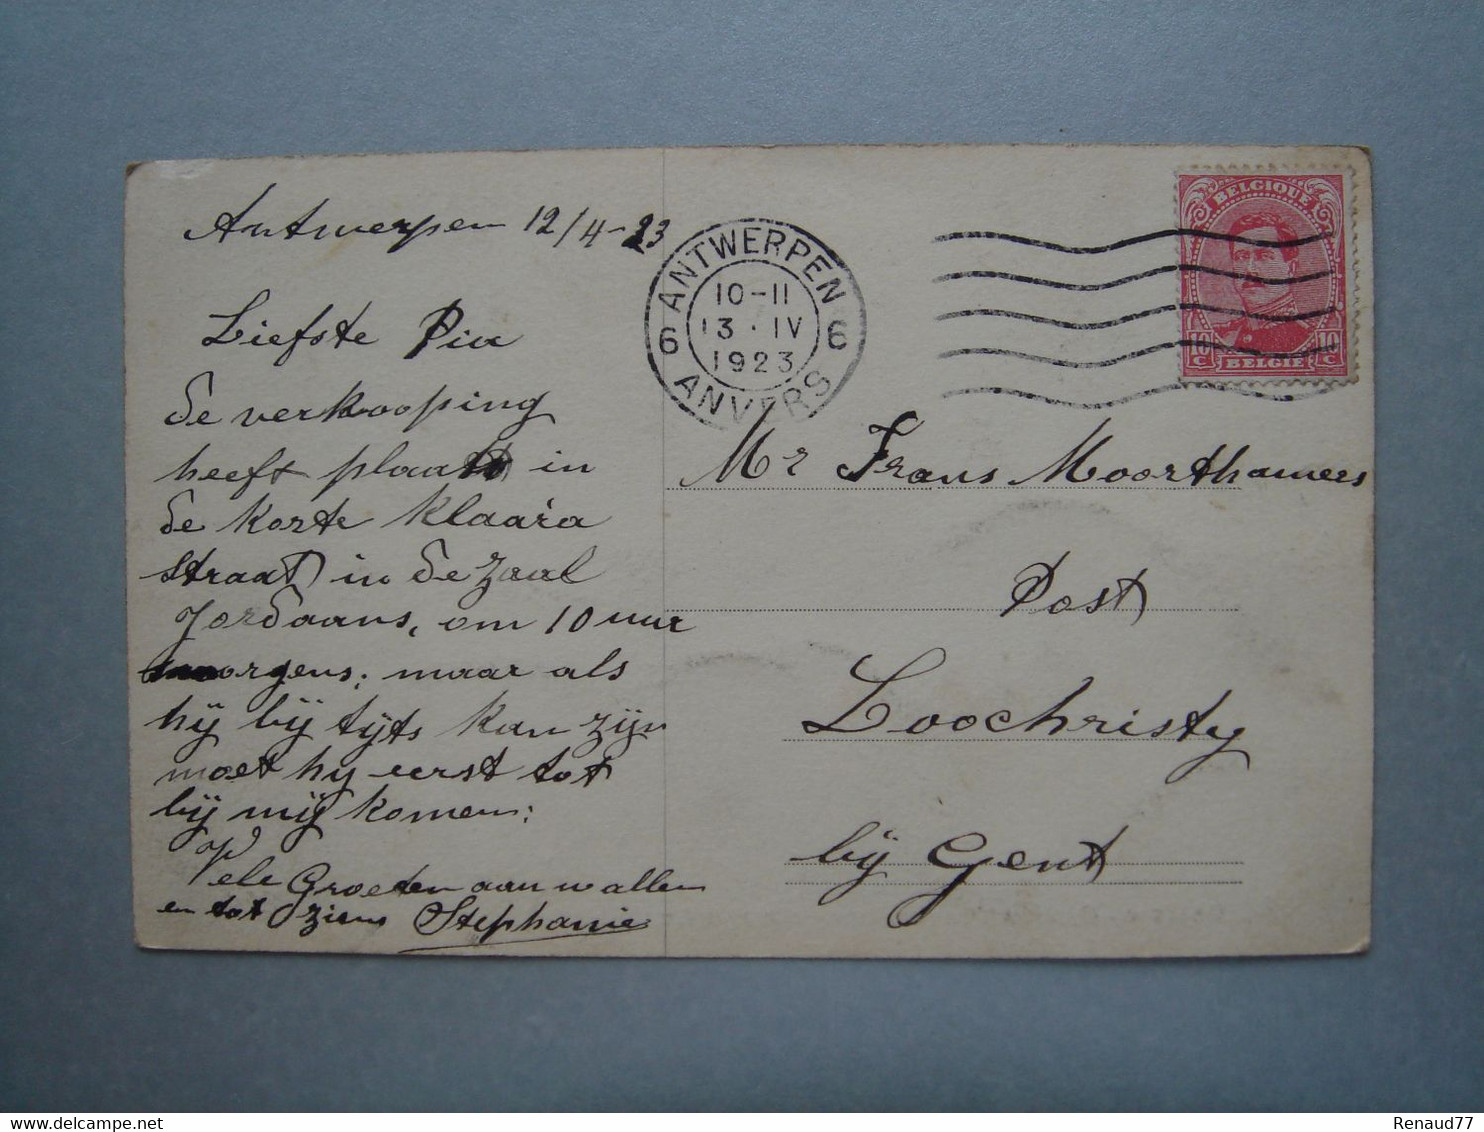 Antwerpen 12/4-23
Liefste Pia
de verkooping
heeft plaats in
de korte Klaara
straat in de zaal
Jordaans, om 10 uur
morgens; maar als
hij bij tijts kan zijn
moet hij eerst tot
bij mij komen:
Vele Groeten aan u allen
en tot ziens Stephanie
ANTWERPEN
10-11
13·IV
1923
6 6
ANVERS
BELGIQUE
10 C 10 C
BELGIË
Mr Frans Moorthamers
Post
Loochristy
bij Gent
Renaud77